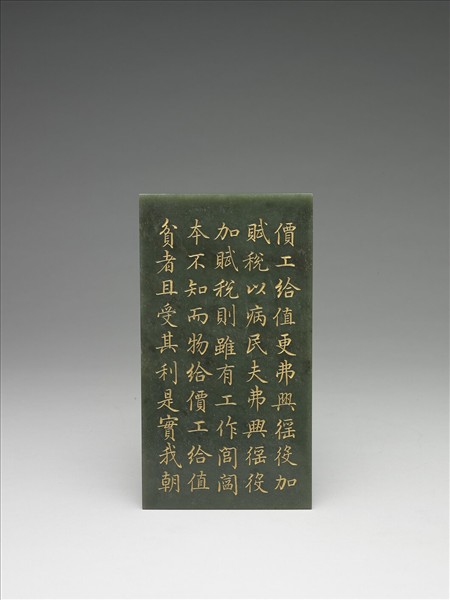 價工給值更弗興徭役加
賦稅以病民夫弗興徭役
加賦稅則雖有工作閭閻
本不知而物給價工給值
貧者且受其利是實我朝